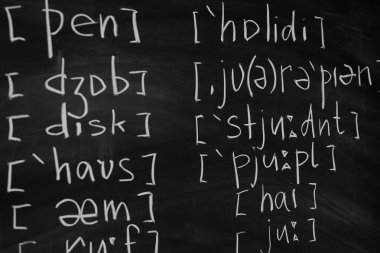 [pen]
[dʒɒb]
[disk]
[`haʊs]
[æm]
[ru:f]
[`hɒlidi]
[,jʊ(ə)rə`piən]
[`stju:dnt]
[`pju:pl]
[`hai]
[ju:]